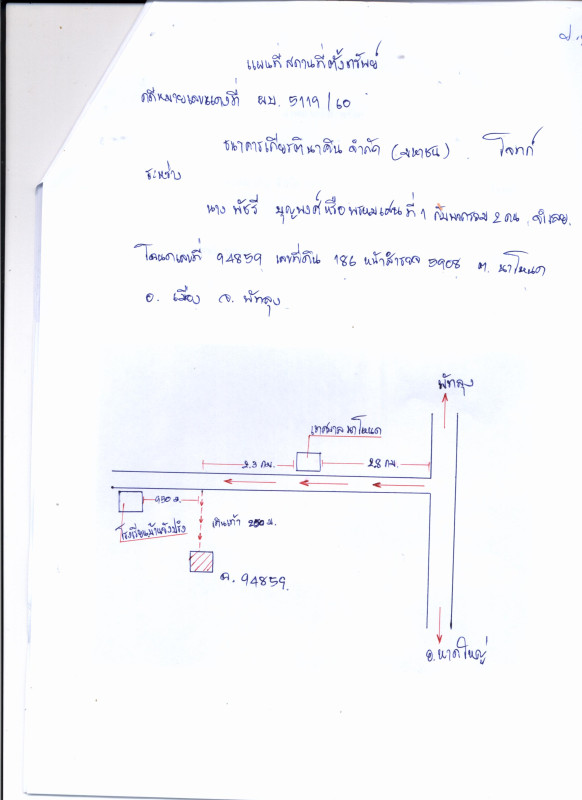 แผนที่สถานที่ตั้งทรัพย์
คดีหมายเลขแดงที่ ผบ. 5119/60
ธนาคารเกียรตินาคิน จำกัด (มหาชน) โจทก์
ระหว่าง
นาง พัชรี บุญพงศ์ หรือ พรหมเสน ที่ 1 กับพวกรวม 2 คน จำเลย.
โฉนดเลขที่ 94859 เลขที่ดิน 186 หน้าสำรวจ 5908 ต. นาโหนด
อ. เมือง จ. พัทลุง
พัทลุง
เทศบาลนาโหนด
2.3 กม. 2.8 กม.
950 ม.
โรงเรียนบ้านยังปริง
เดินเท้า 250 ม.
ฉ. 94859
อ.หาดใหญ่